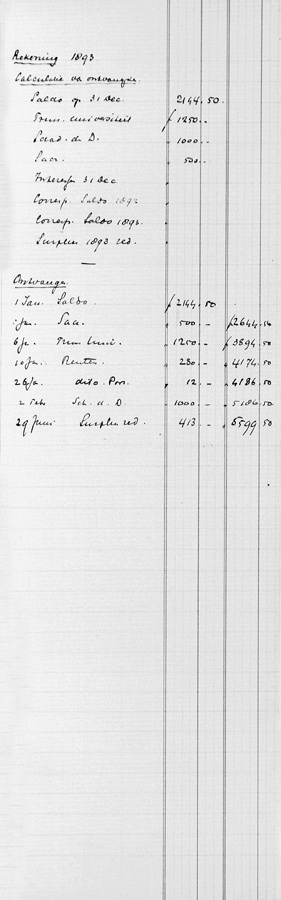 Rekening 1893
Calculatie va ontvangsten
Saldo op 31 Dec. 2144.50.
Trim. universiteit ƒ 1250..
Schad. d. D. " 1000..
Saa. " 500..
Interest 31 Dec "
Corresp. Saldo 1892 "
Corresp. Saldo 1893. "
Surplus 1893 red. "
—
Ontvangen
1 Jan. Saldo. ƒ 2144. 50
" Jan. Saa. " 500. – ƒ 2644. 50
6 Ja. Trim Univ. " 1250. – ƒ 3894. 50
10 Jan. Renten " 280. – " 4174. 50
26 Ja. dito. Pro. " 12. – " 4186. 50
2 Feb. Sch. d. D. " 1000. – " 5186. 50
29 Juni Surplus red. " 413. – " 5599. 50